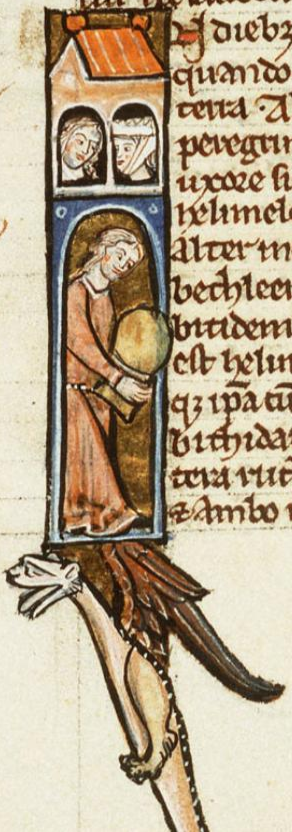 N diebꝫ
quando
terra · A
peregrin
uxore su
helimele
Alter in
bethleem
bitidem
est helim
qꝫ ipa cu
bithidar
tera rut
& Ambo